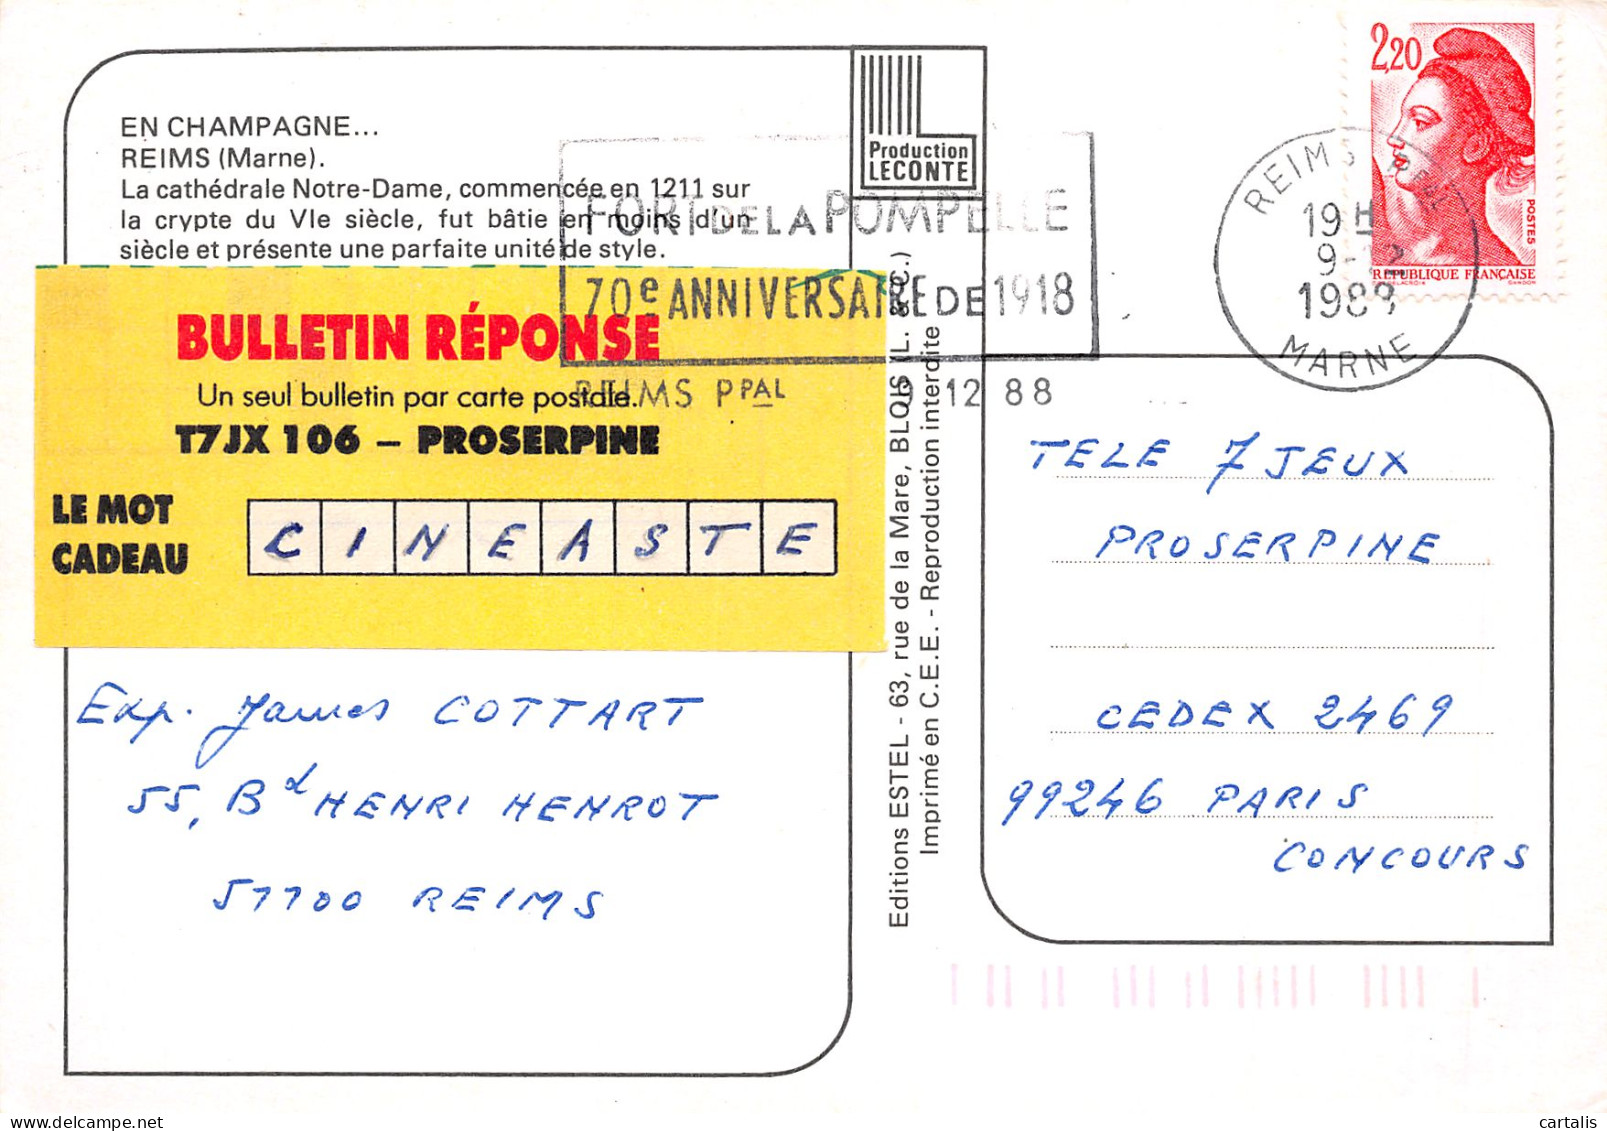 EN CHAMPAGNE...
REIMS (Marne).
La cathédrale Notre-Dame, commencée en 1211 sur
la crypte du VIe siècle, fut bâtie en moins d'un
siècle et présente une parfaite unité de style.
Production
LECONTE
FORT DE LA POMPELLE
70e ANNIVERSAIRE DE 1918
REIMS PPAL 9 12 88
REIMS
19H
9-12
1988
MARNE
2,20
POSTES
REPUBLIQUE FRANÇAISE
GANDON
BULLETIN RÉPONSE
Un seul bulletin par carte postale.
T7JX 106 – PROSERPINE
LE MOT
CADEAU
CINEASTE
Exp. James COTTART
55, Bd HENRI HENROT
51100 REIMS
Editions ESTEL - 63, rue de la Mare, BLOIS (L. & C.)
Imprimé en C.E.E. - Reproduction interdite
TELE 7 JEUX
PROSERPINE
CEDEX 2469
99246 PARIS
CONCOURS
cartalis
www.delcampe.net